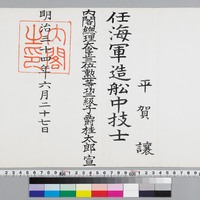 任海軍造船中技士
平賀讓
内閣總理大臣正三位勲一等功三級子爵桂太郎宣
明治三十四年六月二十七日
内閣之印